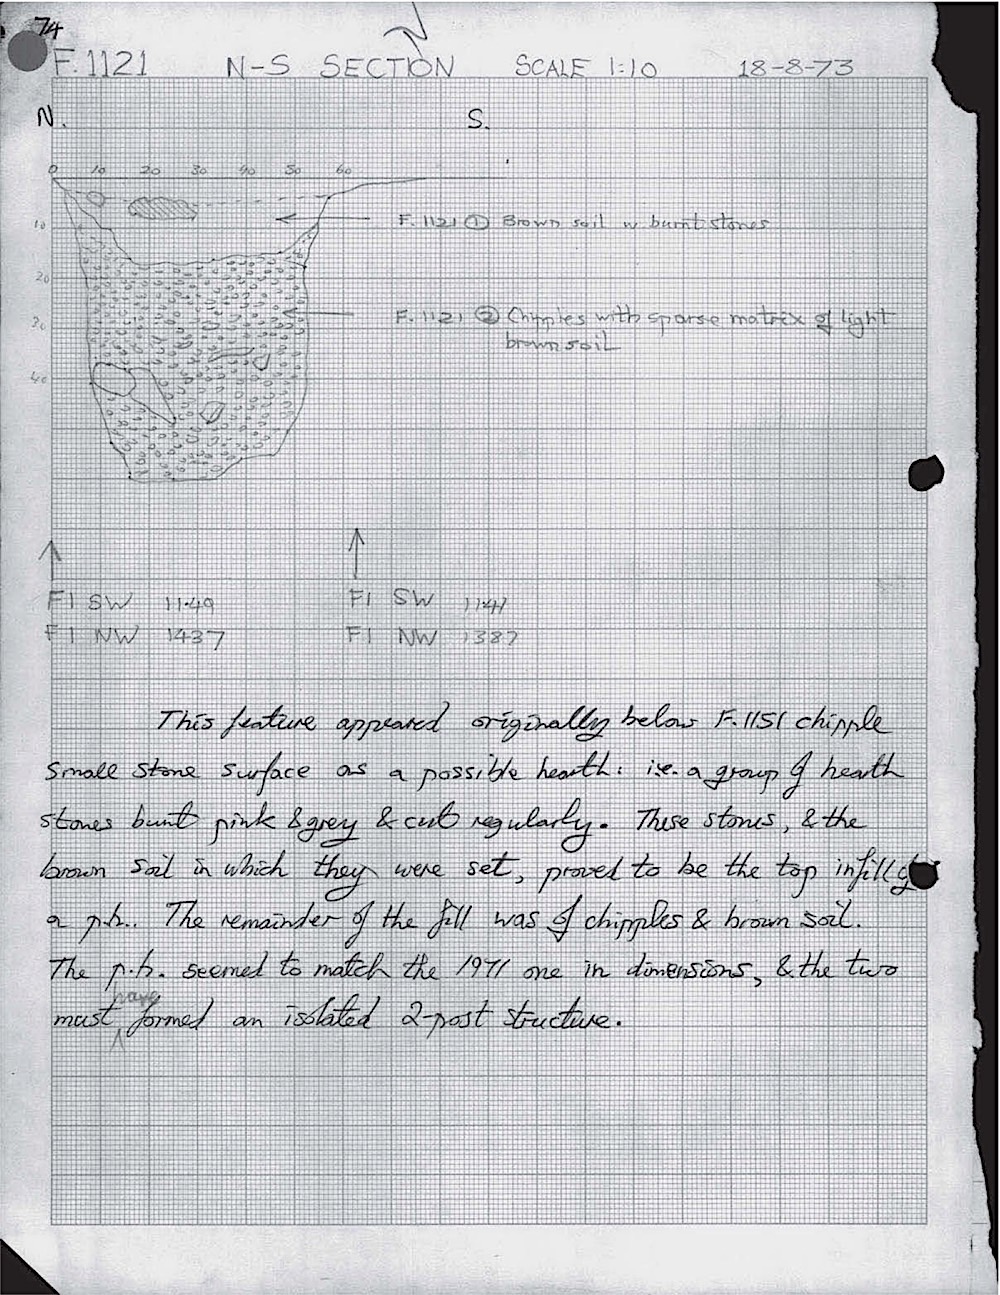 74
F.1121 N-S SECTION SCALE 1:10 18-8-73
N. S.
0 10 20 30 40 50 60
10
F. 1121 ① Brown soil w burnt stones
20
30
F. 1121 ② Chipples with sparse matrix of light
brown soil
40
F1 SW 1149 F1 SW 1141
F1 NW 1437 F1 NW 1387
This feature appeared originally below F.1151 chipple
small stone surface as a possible hearth: i.e. a group of hearth
stones burnt pink & grey & cut regularly. These stones, & the
brown soil in which they were set, proved to be the top infill of
a p.h.. The remainder of the fill was of chipples & brown soil.
The p.h. seemed to match the 1971 one in dimensions, & the two
have
must formed an isolated 2-post structure.